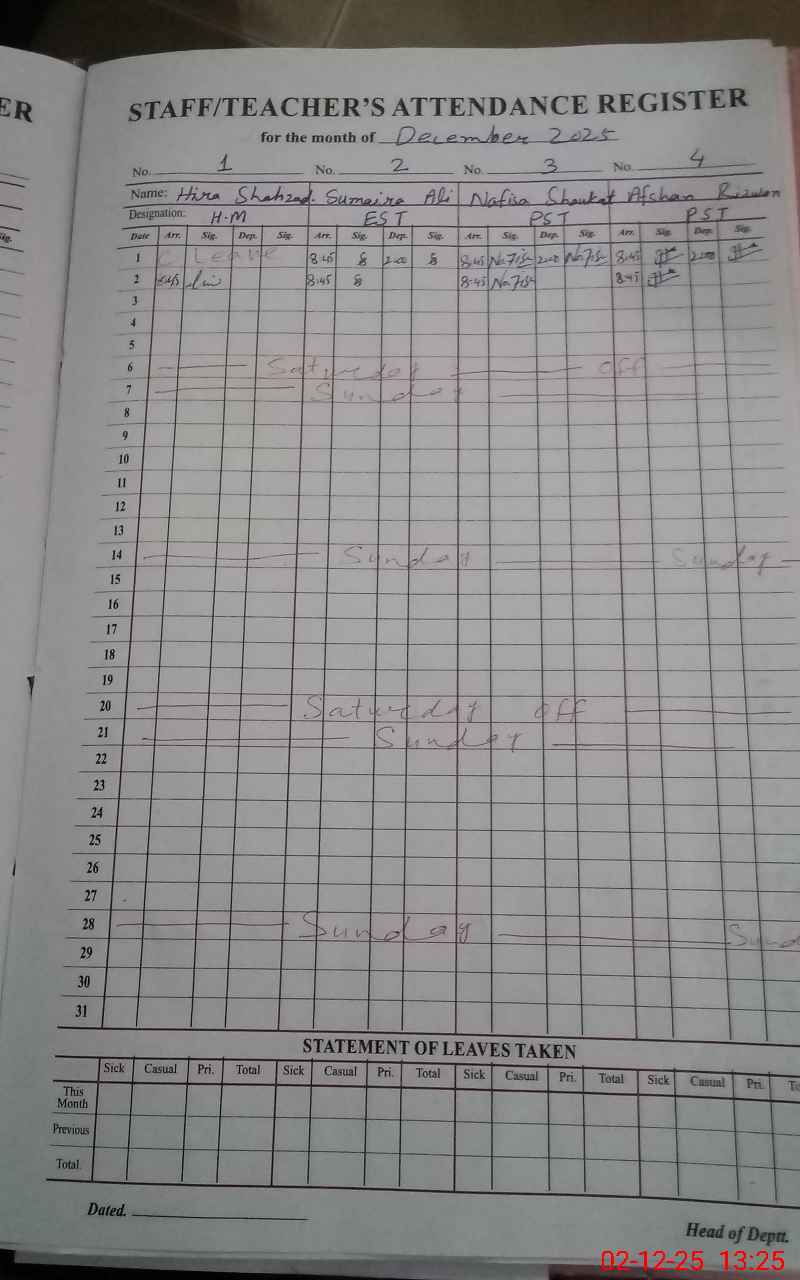 ER
STAFF/TEACHER'S ATTENDANCE REGISTER
for the month of December 2025
No. 1 No. 2 No. 3 No. 4
Name: Hira Shahzad. Sumaira Ali Nafisa Shaukat Afshan Rizwan
Designation: H.M EST PST PST
Sig. Date Arr. Sig. Dep. Sig. Arr. Sig. Dep. Sig. Arr. Sig. Dep. Sig. Arr. Sig. Dep. Sig.
1 C Leave 8:45 2:00 8:45 Nafisa 2:00 Nafisa 8:45 2:00
2 8:45 8:45 8:45 Nafisa 8:45
3
4
5
6 Saturday off
7 Sunday
8
9
10
11
12
13
14 Sunday Sunday
15
16
17
18
19
20 Saturday off
21 Sunday
22
23
24
25
26
27
28 Sunday Sund
29
30
31
STATEMENT OF LEAVES TAKEN
Sick Casual Pri. Total Sick Casual Pri. Total Sick Casual Pri. Total Sick Casual Pri. To
This Month
Previous
Total.
Dated.
Head of Deptt.
02-12-25 13:25